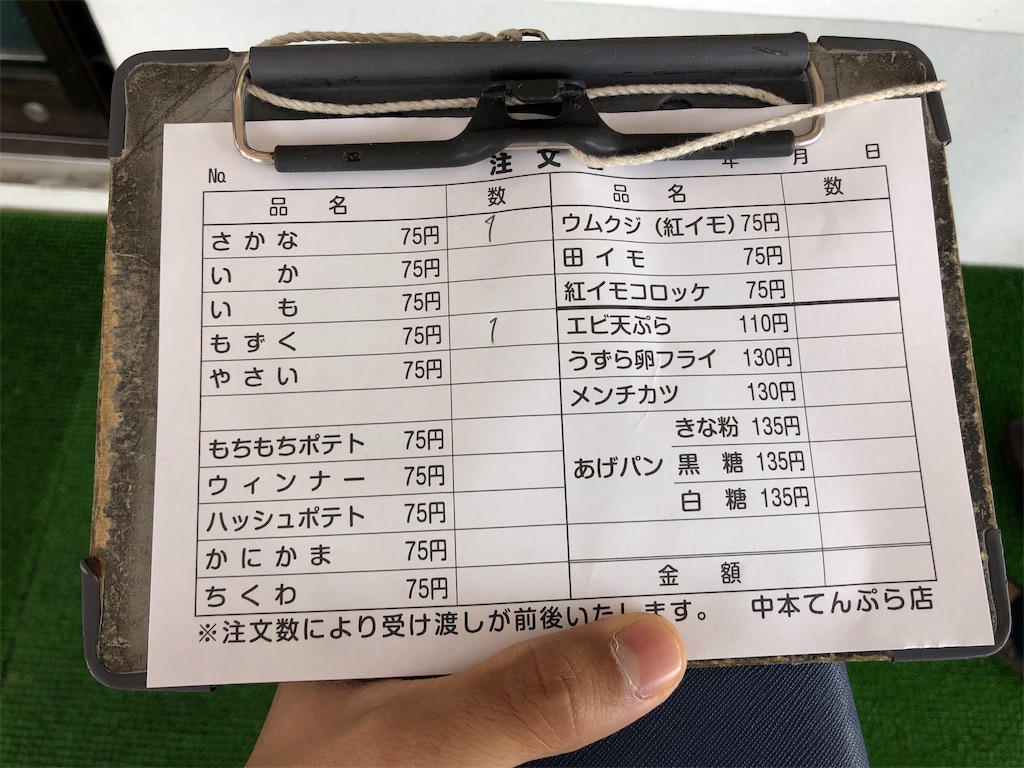 注 文
年 月 日
№
品 名 数
さかな 75円 1
いか 75円
いも 75円
もずく 75円 1
やさい 75円
もちもちポテト 75円
ウィンナー 75円
ハッシュポテト 75円
かにかま 75円
ちくわ 75円
品 名 数
ウムクジ（紅イモ）75円
田イモ 75円
紅イモコロッケ 75円
エビ天ぷら 110円
うずら卵フライ 130円
メンチカツ 130円
あげパン きな粉 135円
黒糖 135円
白糖 135円
金額
※注文数により受け渡しが前後いたします。 中本てんぷら店